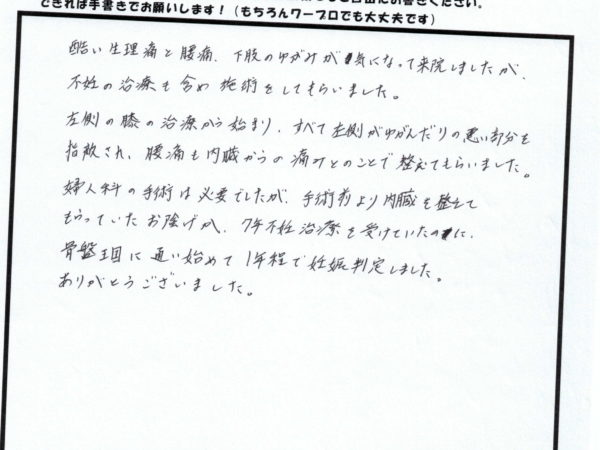 できれば手書きでお願いします！（もちろんワープロでも大丈夫です）
酷い生理痛と腰痛、下肢のゆがみが気になって来院しましたが、
不妊の治療も含め施術をしてもらいました。
左側の膝の治療から始まり、すべて左側がゆがんだりの悪い部分を
指摘され、腰痛も内臓からの痛みとのことで整えてもらいました。
婦人科の手術は必要でしたが、手術前より内臓を整えて
もらっていたお陰げか、7年不妊治療を受けていたのに、
骨盤王国に通い始めて1年程で妊娠判定しました。
ありがとうございました。